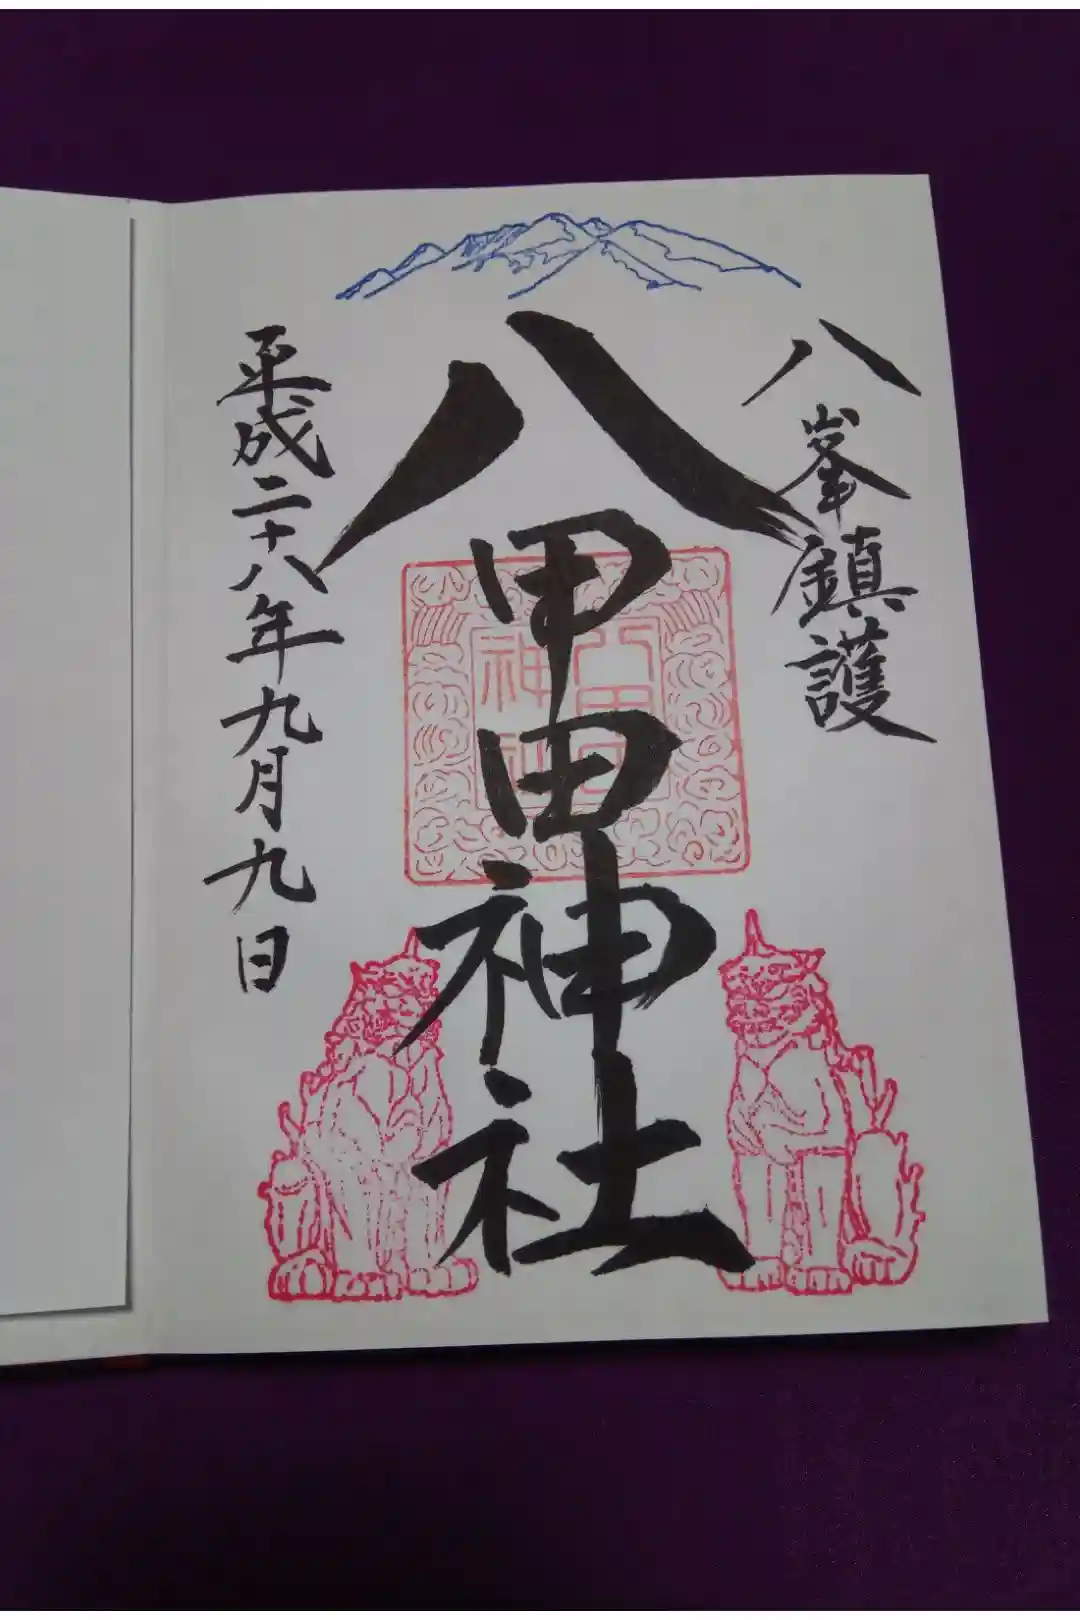 八峯鎮護
八甲田神社
平成二十八年九月九日